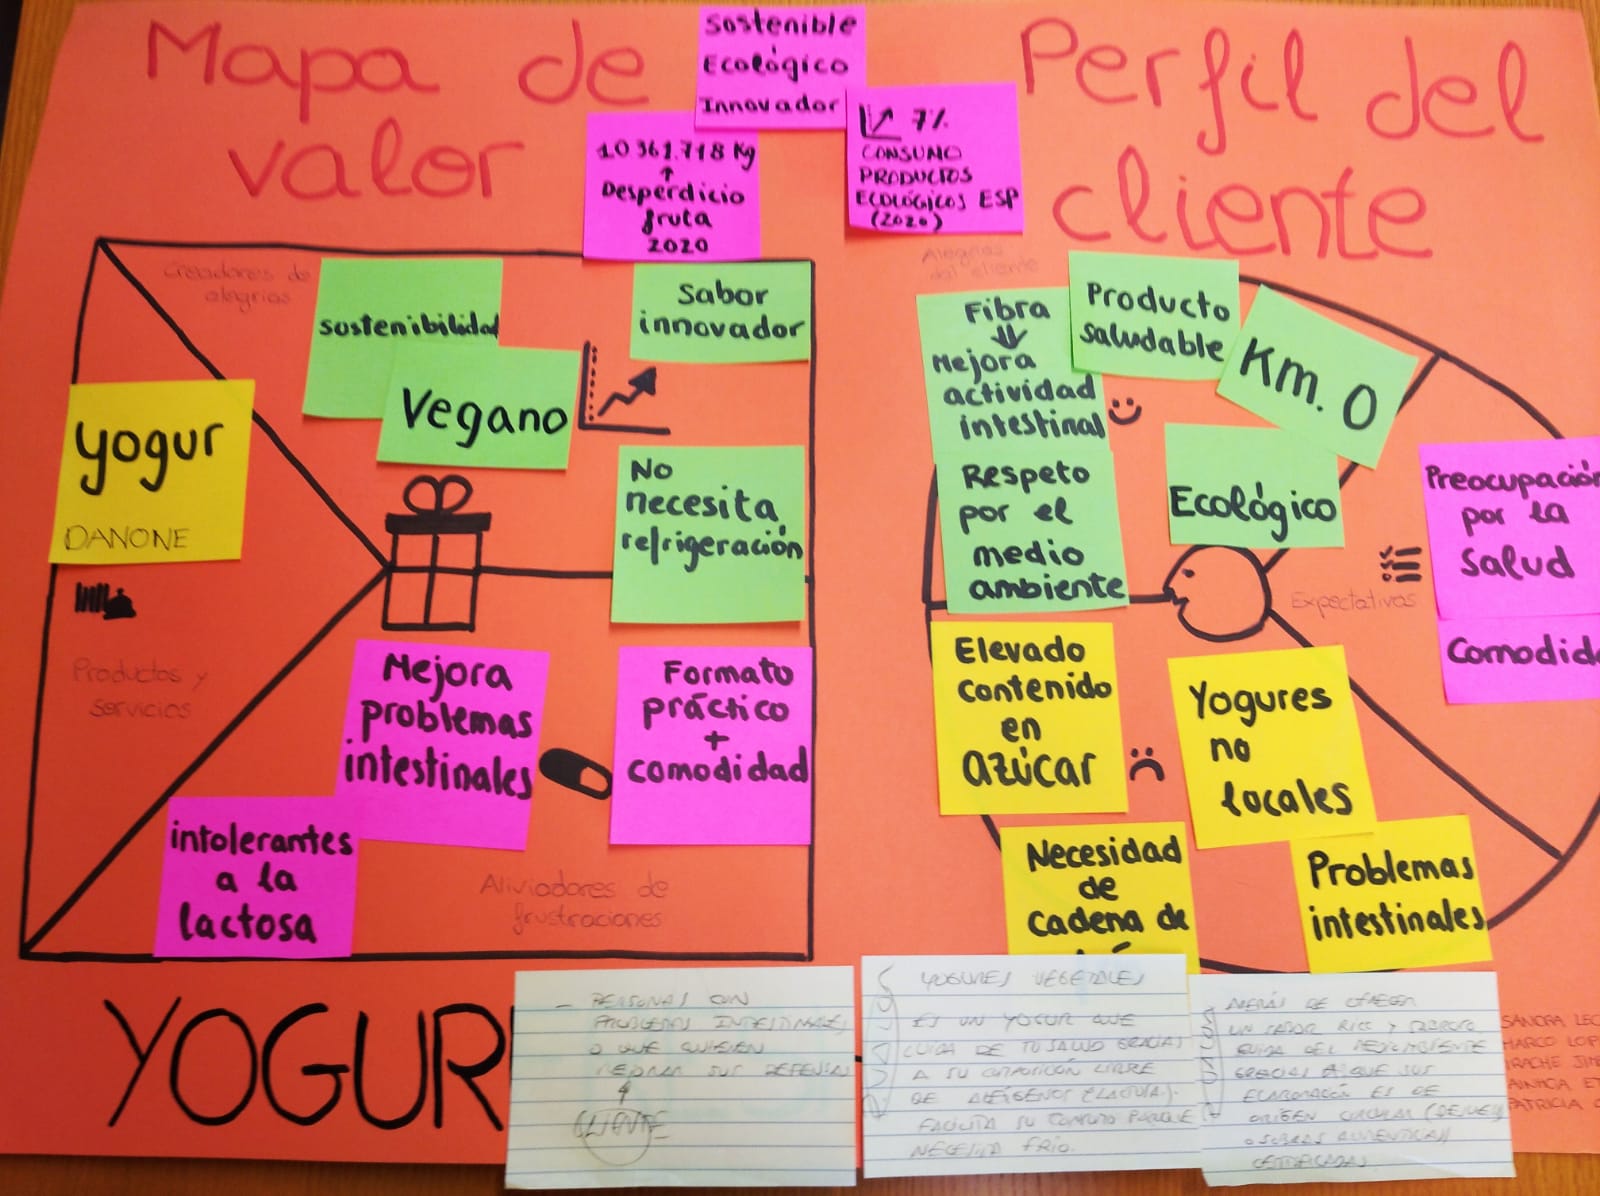 Mapa de
valor
Sostenible
Ecológico
Innovador
10 361.718 Kg
Desperdicio
fruta
2020
7%
CONSUMO
PRODUCTOS
ECOLÓGICOS ESP
(2020)
Perfil del
cliente
Creadores de
alegrías
sostenibilidad
Vegano
Sabor
innovador
No
necesita
refrigeración
yogur
DANONE
Productos y
servicios
Mejora
problemas
intestinales
Formato
práctico
+
comodidad
intolerantes
a la
lactosa
Aliviadores de
frustraciones
Alegrías
del cliente
Fibra
Mejora
actividad
intestinal
Producto
saludable
Km. 0
Respeto
por el
medio
ambiente
Ecológico
Expectativas
Preocupación
por la
salud
Comodid
Elevado
contenido
en
azúcar
Yogures
no
locales
Necesidad
de
cadena de
Problemas
intestinales
YOGUR
- PERSONAS CON
PROBLEMAS INTESTINALES
O QUE QUIEREN
MEJORAR SUS DEFENSAS
CLIENTE
YOGURES VEGETALES
ES UN YOGUR QUE
CUIDA DE TU SALUD GRACIAS
A SU COMPOSICIÓN LIBRE
DE ALÉRGENOS (LACTOSA).
FACILITA SU CONSUMO PORQUE
NECESITA FRÍO.
ADEMÁS DE OFRECER
UN SABOR RICO Y
CUIDA DEL MEDIOAMBIENTE
GRACIAS A QUE SUS
ELABORACIÓN ES DE
ORIGEN CIRCULAR
CERTIFICADAS
SANDRA LEC
MARCO LOP
IRACHE JIM
AINHOA ET
PATRICIA